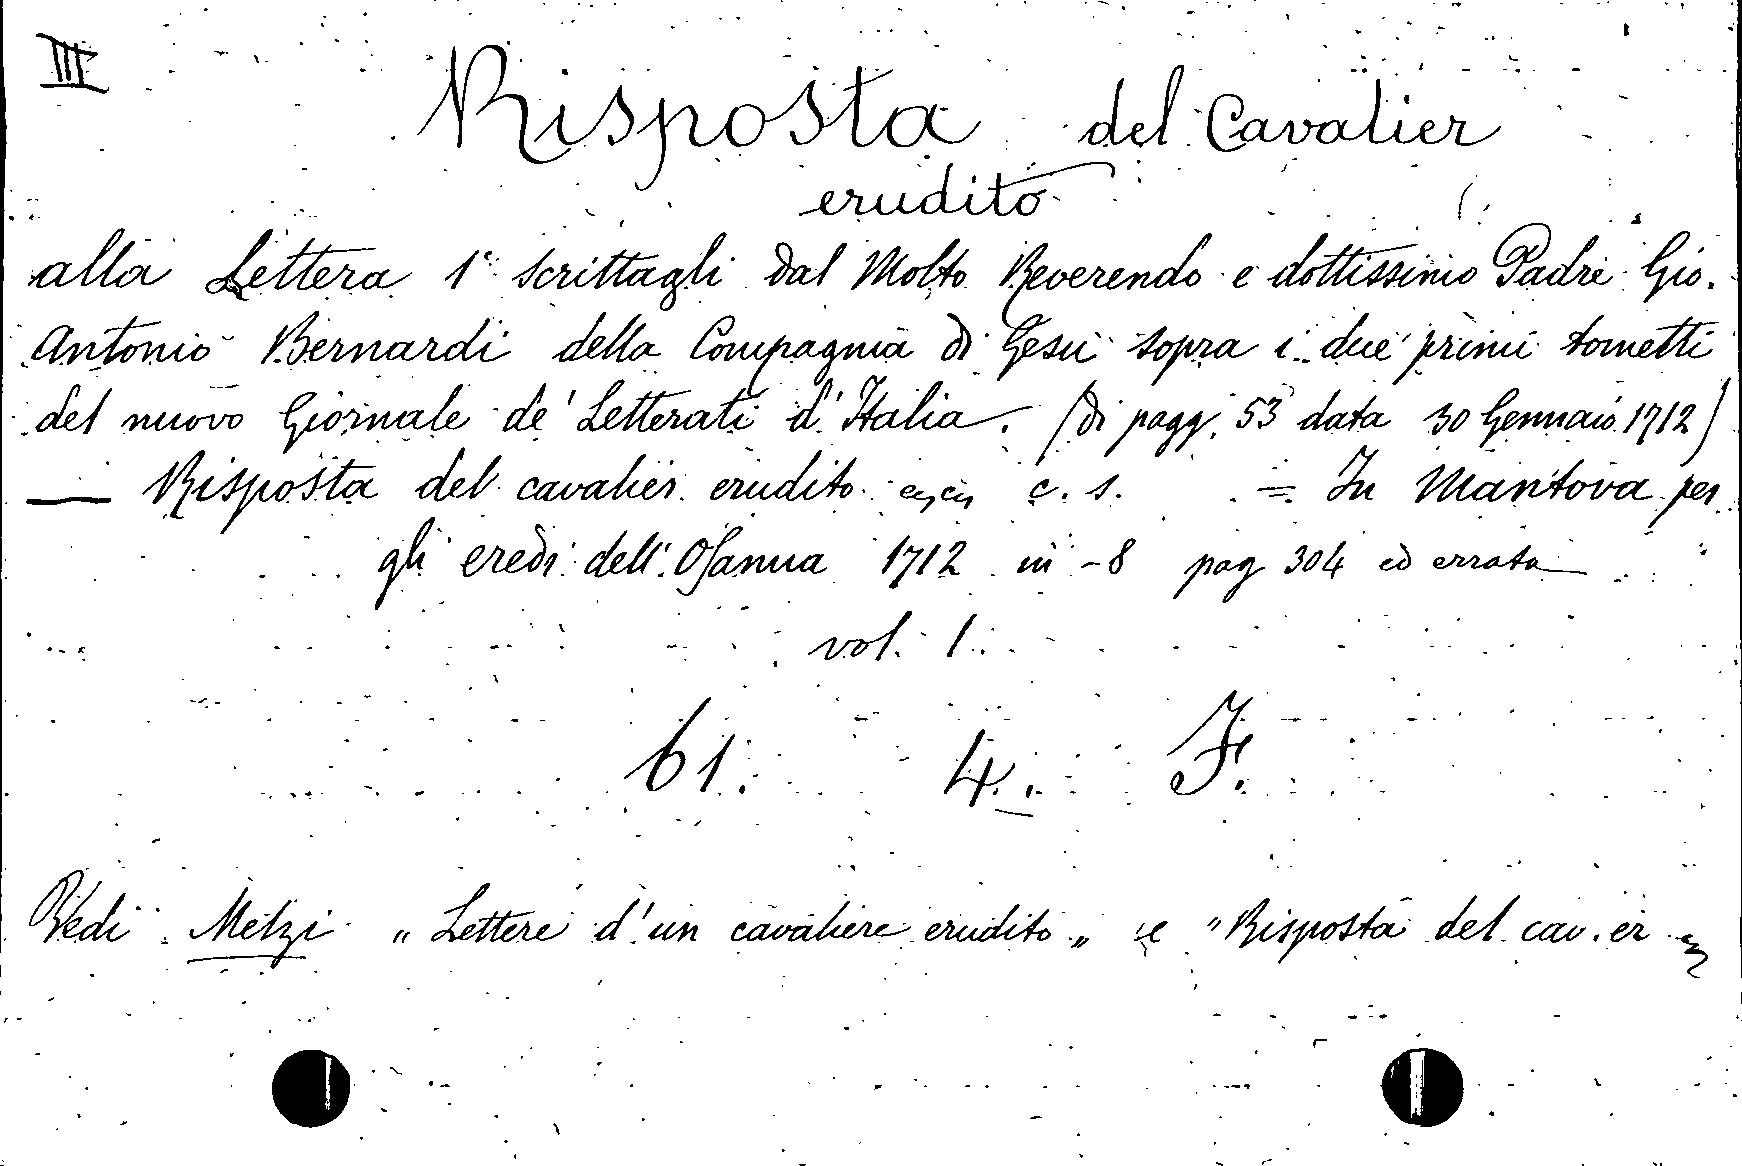 III
Risposta del Cavalier
erudito
alla Lettera 1ª scrittagli dal Molto Reverendo e dottissimo Padre Gio.
Antonio Bernardi della Compagnia di Gesù sopra i due primi tometti
del nuovo Giornale de' Letterati d'Italia. (di pagg. 53 data 30 Gennaio 1712)
— Risposta del cavalier erudito c. s. = In Mantova per
gli eredi dell'Osanna 1712 in -8 pag 304 ed errata
vol. 1.
61. 4. F.
Vedi Melzi „ Lettere d'un cavaliere erudito „ e "Risposta del cav. er